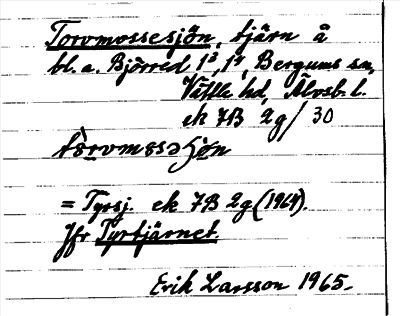 Torvmossesjön, tjärn å
bl. a. Björred 1³, 1⁴, Bergums sn,
Vättle hd, Älvsb. l.
ek 7B 2g/30
= Tyrsj. ek 7B 2g (1964).
Jfr Tyrtjärnet
Erik Larsson 1965.